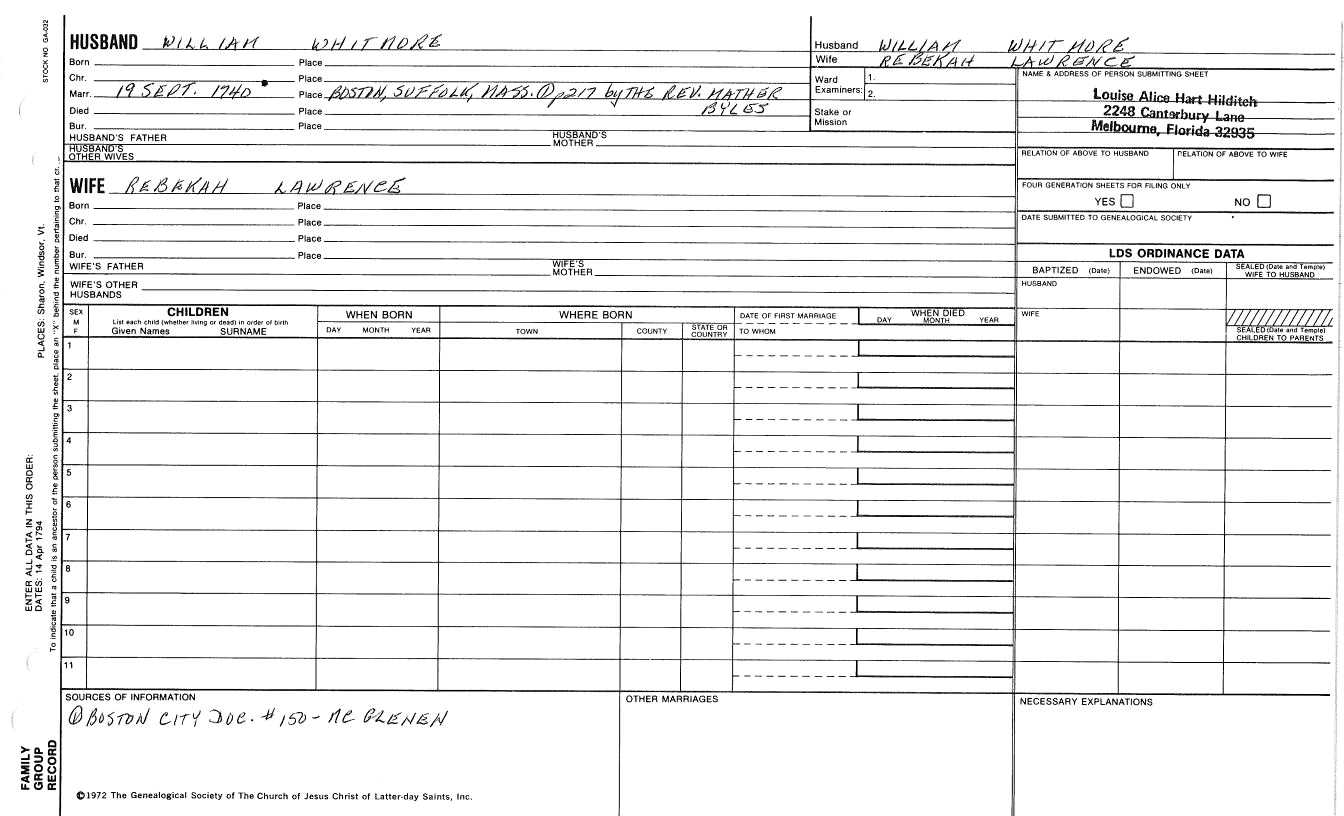 STOCK NO GA-032
PLACES: Sharon, Windsor, Vt.
ENTER ALL DATA IN THIS ORDER:
DATES: 14 Apr 1794
To indicate that a child is an ancestor of the person submitting the sheet, place an "X" behind the number pertaining to that
FAMILY
GROUP
RECORD
HUSBAND WILLIAM WHITMORE
Born Place
Chr. Place
Marr. 19 SEPT. 1740 Place BOSTON, SUFFOLK, MASS. ① p217 by THE REV. MATHER
Died Place BYLES
Bur. Place
HUSBAND'S FATHER HUSBAND'S MOTHER
HUSBAND'S
OTHER WIVES
Husband WILLIAM WHITMORE
Wife REBEKAH LAWRENCE
Ward
Examiners: 1.
2.
Stake or
Mission
NAME & ADDRESS OF PERSON SUBMITTING SHEET
Louise Alice Hart Hilditch
2248 Canterbury Lane
Melbourne, Florida 32935
RELATION OF ABOVE TO HUSBAND RELATION OF ABOVE TO WIFE
FOUR GENERATION SHEETS FOR FILING ONLY
YES NO
DATE SUBMITTED TO GENEALOGICAL SOCIETY
WIFE REBEKAH LAWRENCE
Born Place
Chr. Place
Died Place
Bur. Place
WIFE'S FATHER WIFE'S MOTHER
WIFE'S OTHER
HUSBANDS
LDS ORDINANCE DATA
BAPTIZED (Date) ENDOWED (Date) SEALED (Date and Temple) WIFE TO HUSBAND
HUSBAND
WIFE
SEALED (Date and Temple)
CHILDREN TO PARENTS
SEX
M
F
CHILDREN
List each child (whether living or dead) in order of birth
Given Names SURNAME
WHEN BORN
DAY MONTH YEAR
WHERE BORN
TOWN COUNTY STATE OR COUNTRY
DATE OF FIRST MARRIAGE
TO WHOM
WHEN DIED
DAY MONTH YEAR
1
2
3
4
5
6
7
8
9
10
11
SOURCES OF INFORMATION
① BOSTON CITY DOC. #150 - MC GLENEN
OTHER MARRIAGES
NECESSARY EXPLANATIONS
©1972 The Genealogical Society of The Church of Jesus Christ of Latter-day Saints, Inc.